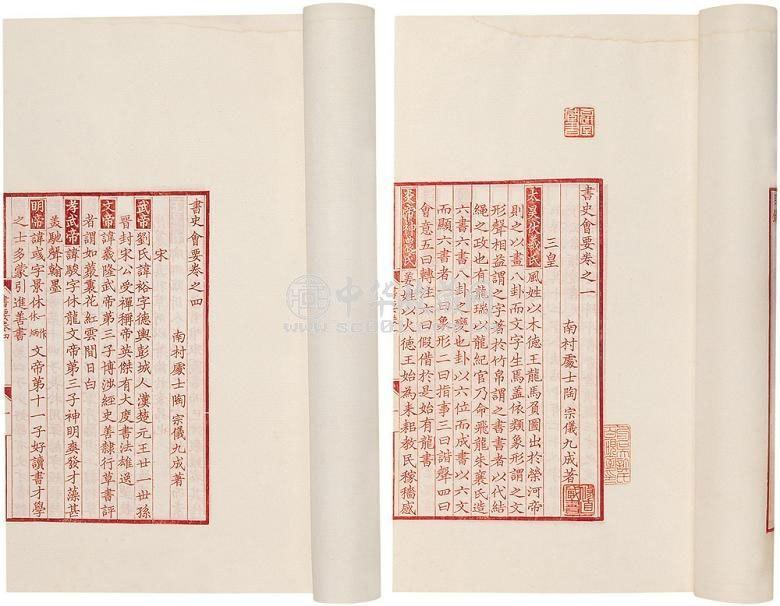 書史會要卷之一
三皇
南村處士陶宗儀九成著
太昊伏羲氏風姓以木德王龍馬負圖出於滎河帝
則之以畫八卦而文字生焉蓋依類象形謂之文
形聲相益謂之字著於竹帛謂之書書者以代結
繩之政也有龍瑞以龍紀官乃命飛龍朱襄氏造
六書六書八卦之變也卦以六位而成書以六文
而顯六書者一曰象形二曰指事三曰諧聲四曰
會意五曰轉注六曰假借於是始有龍書
炎帝神農氏姜姓以火德王始為耒耜教民稼穡感
書史會要卷之四
宋
南村處士陶宗儀九成著
武帝劉氏諱裕字德輿彭城人漢楚元王廿一世孫
晉封宋公受禪稱帝英傑有大度書法雄逸
文帝諱義隆武帝第三子博涉經史善隸行草書評
者謂如葳蕤花紅雲間日白
孝武帝諱駿字休龍文帝第三子神明爽發才藻甚
美馳聲翰墨
明帝諱彧字景休休作炳文帝第十一子好讀書才學
之士多蒙引進善書
中华
www.sc001